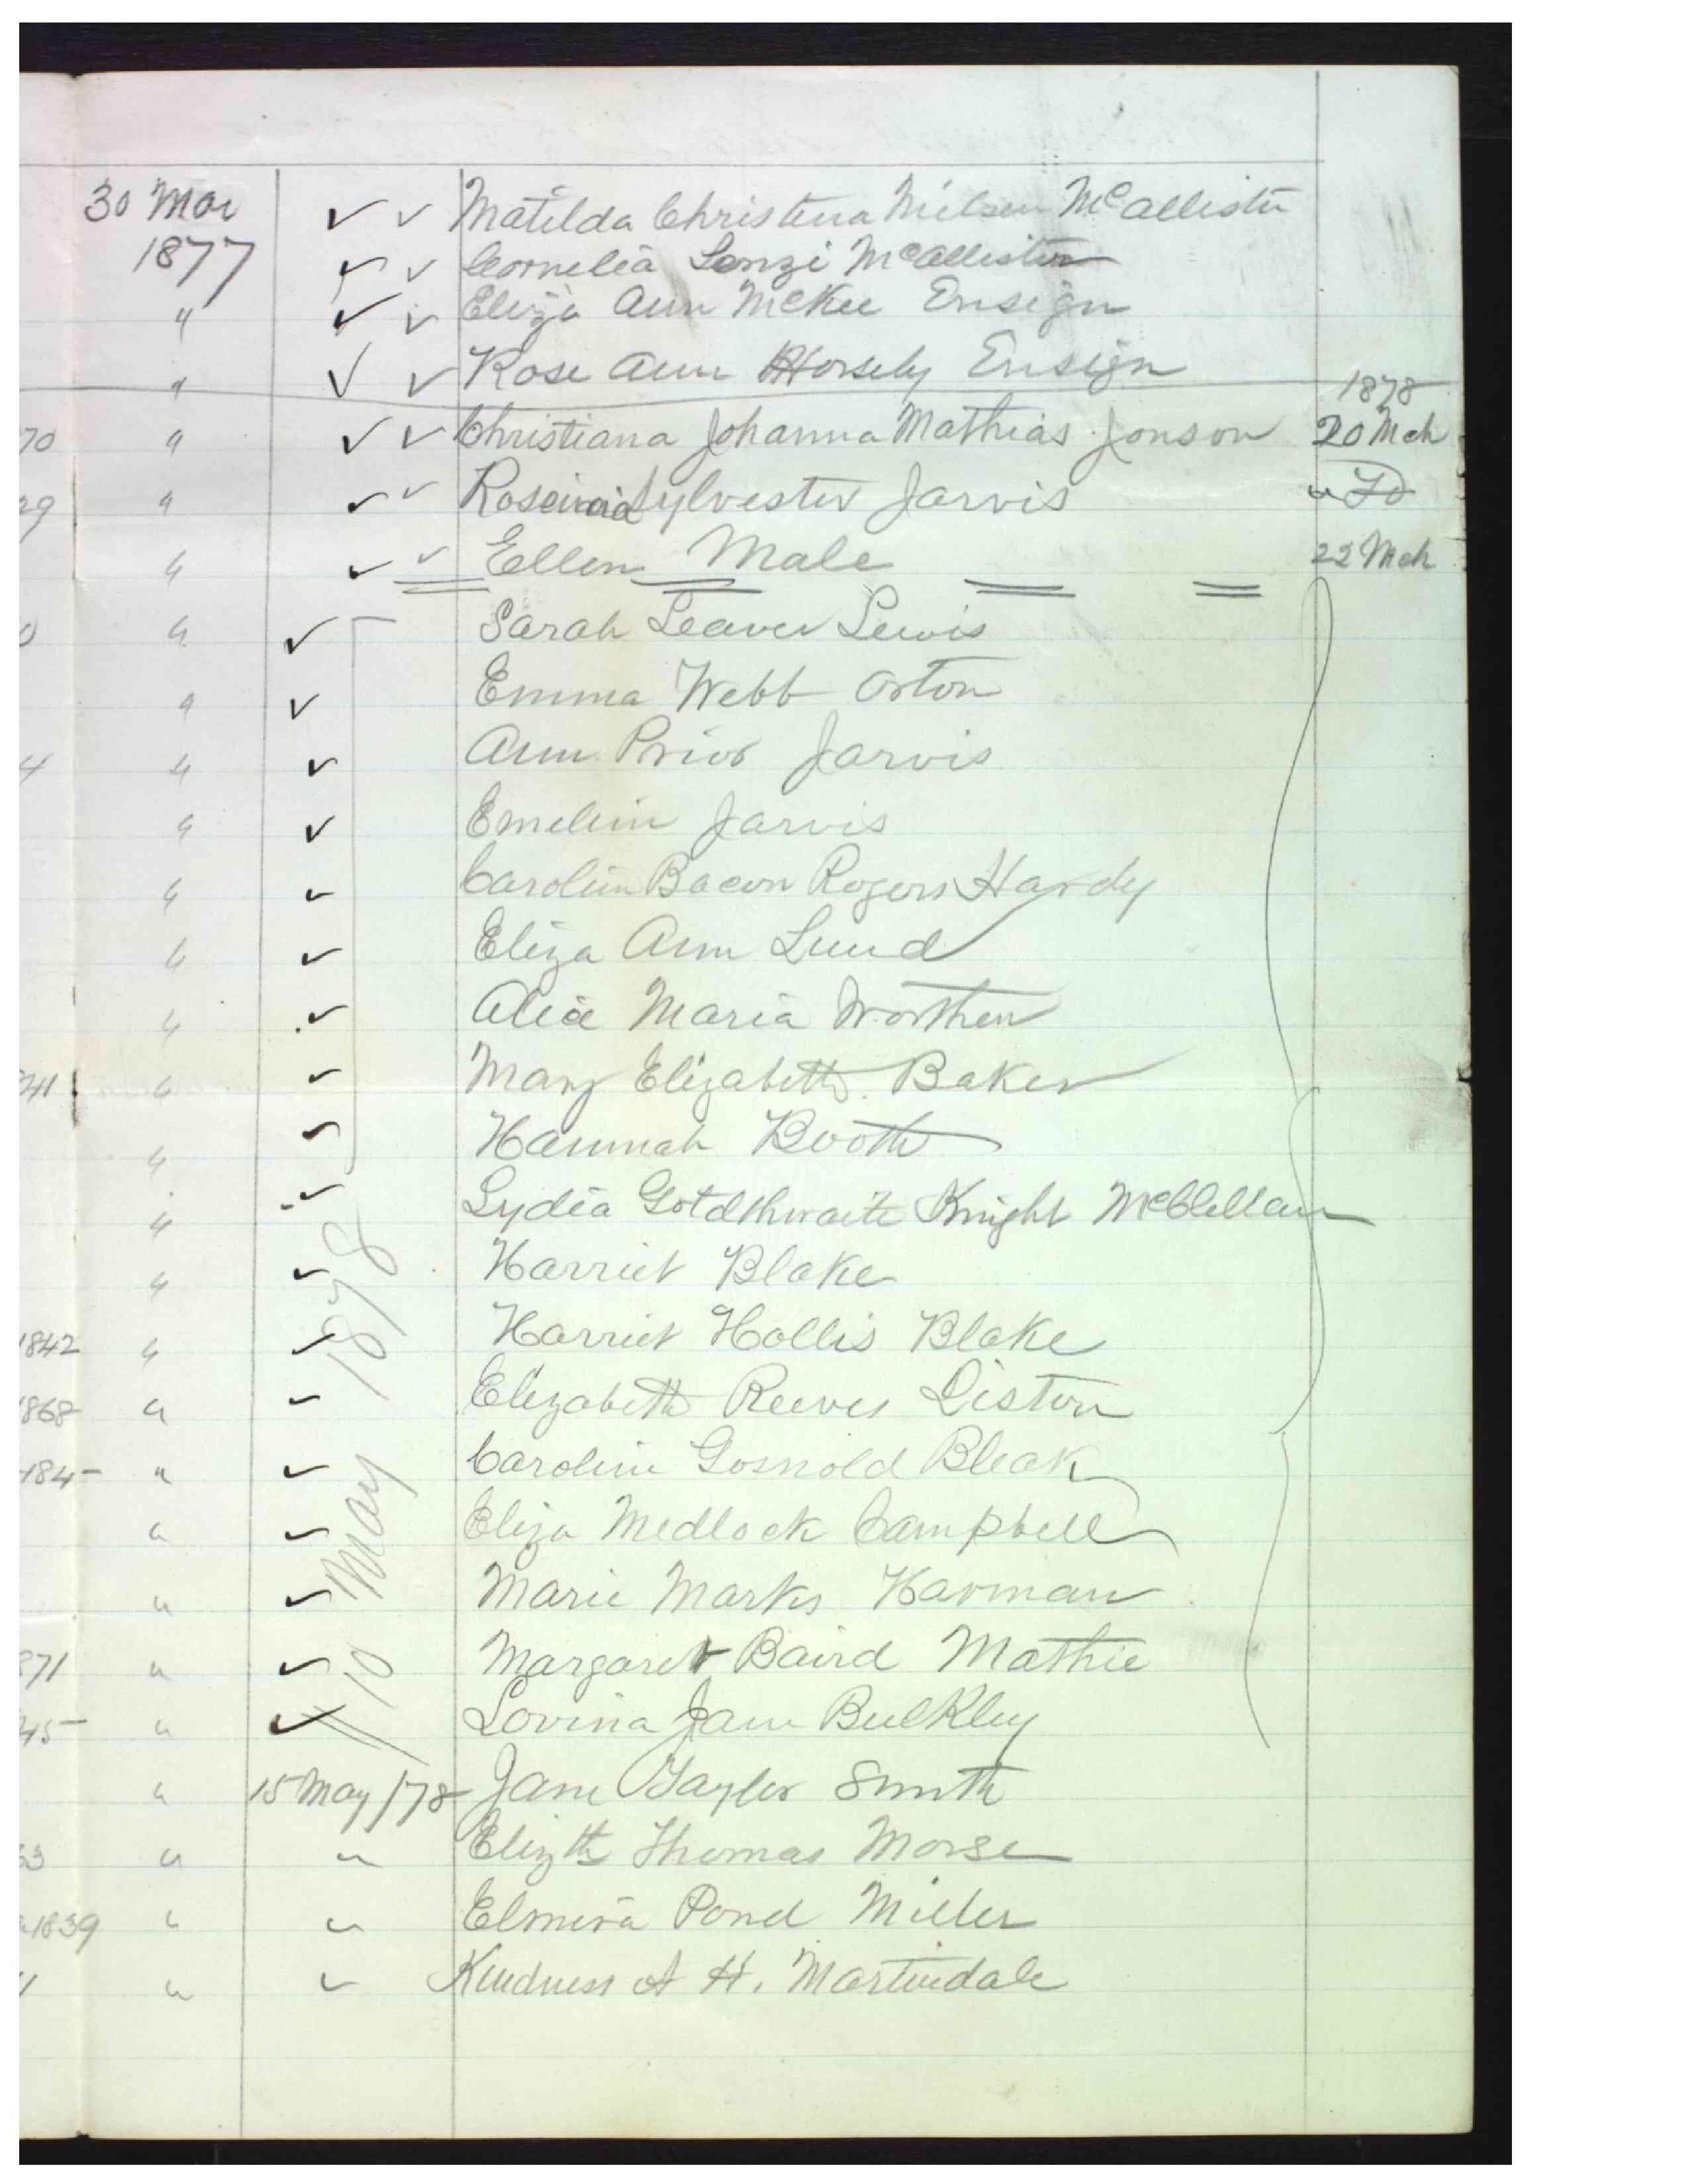 30 Mar ✓ ✓ Matilda Christina Nielsen McAllister
1877 ✓ ✓ Cornelia Lenzi McAllister
" ✓ ✓ Eliza Ann McKee Ensign
" ✓ ✓ Rose Ann Horsely Ensign
1878
70 " ✓ ✓ Christiana Johanna Mathias Jonson 20 Mch
29 " ✓ ✓ Sylvester Jarvis " Do
" ✓ ✓ Ellen Male 22 Mch
0 " ✓ Sarah Leaver Lewis
" ✓ Emma Webb Orton
4 " ✓ Ann Prior Jarvis
" ✓ Emelin Jarvis
" ✓ Carolin Bacon Rogers Hardy
" ✓ Eliza Ann Lund
" ✓ Alice Maria Worthen
41 " ✓ Mary Elizabeth Baker
" ✓ Hannah Booth
" ✓ Lydia Goldthwaite Knight McClellan
" ✓ Harriet Blake
1842 " ✓ Harriet Hollis Blake
1868 " ✓ Elizabeth Reeves Liston
184- " ✓ Carolin Gosnold Bleak
" ✓ Eliza Medlock Campbell
" ✓ Marie Marks Harman
871 " ✓ Margaret Baird Mathie
45- " ✓ Lovina Jane Bulkley
10 May 1878
" 15 May /78 Jane Tayler Smith
53 " " Elizth Thomas Morse
1839 " " Elmira Pond Miller
1 " " Kindness A H. Martindale